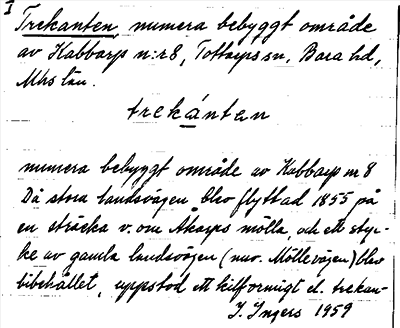 I
Trekanten, numera bebyggt område
av Kabbarp n:r 8, Tottarps sn, Bara hd,
Mhs län.
trekánten
numera bebyggt område av Kabbarp nr 8
Då stora landsvägen blev flyttad 1855 på
en sträcka v. om Åkarps mölla, och ett styc-
ke av gamla landsvägen (nuv. Möllevägen) blev
bibehållet, uppstod ett kilformigt el. trekan-
I. Ingers 1959